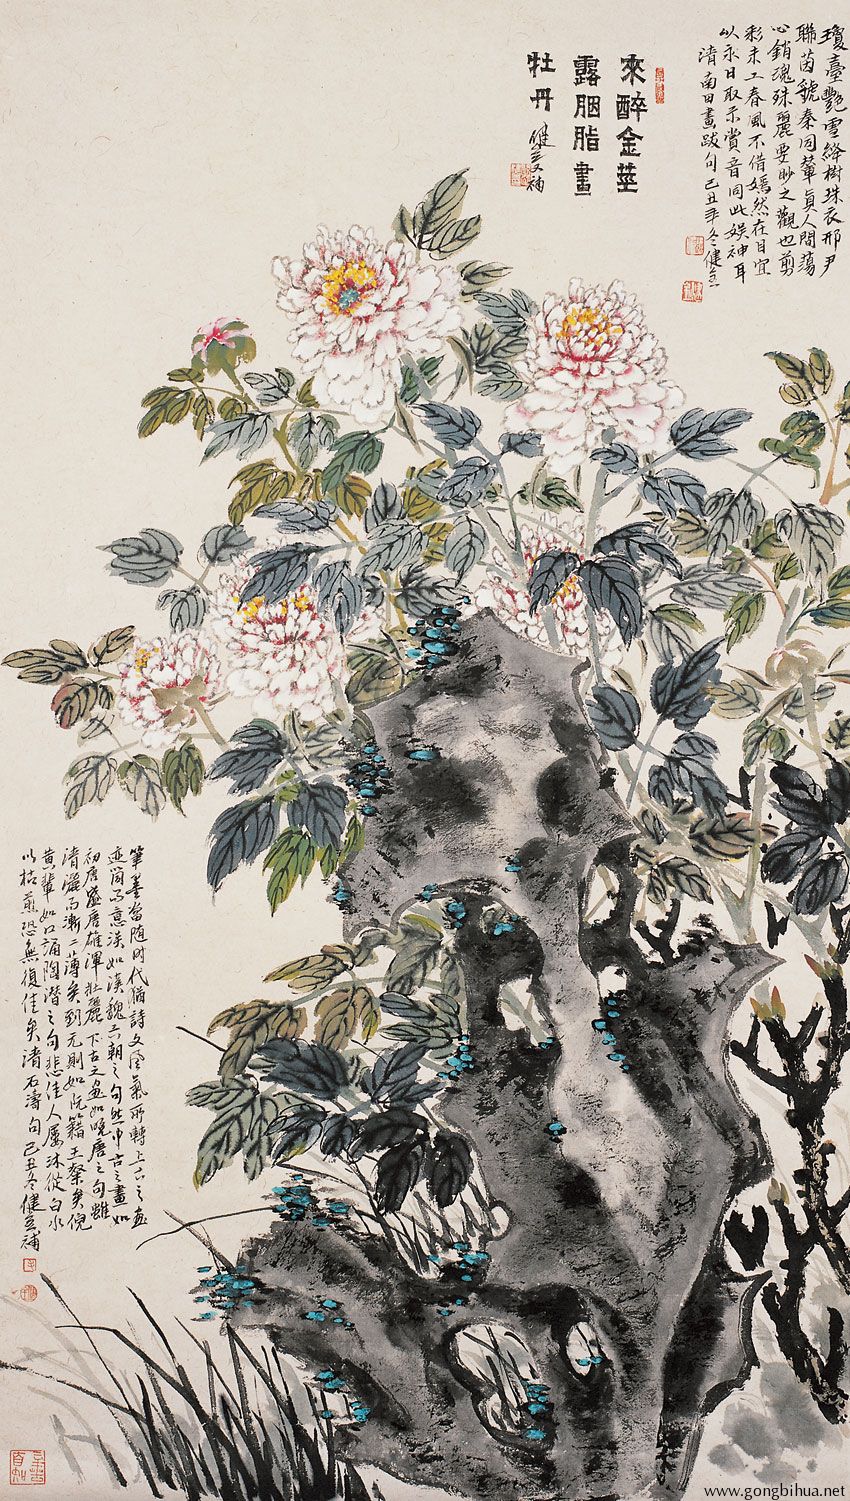 來醉金莖
露胭脂畫
牡丹
瓊臺艷雪絳樹珠衣邢尹
聯茵虢秦同輦真人間蕩
心銷魂殊麗要妙之觀也剪
彩未工春風不借嫣然在目宜
以永日取示賞音同此娛神耳
清南田畫跋句己丑年冬健
筆墨當隨時代猶詩文風氣所轉上古之畫
迹簡而意淡如漢魏六朝之句然中古之畫如
初唐盛唐雄渾壯麗下古之畫如晚唐之句雖
清灑而漸漸薄矣到元則如阮籍王粲矣倪
黃輩如口誦陶潛之句悲佳人屢沐從白水
以枯煎恐無復佳矣清石濤句己丑冬健立補
www.gongbihua.net